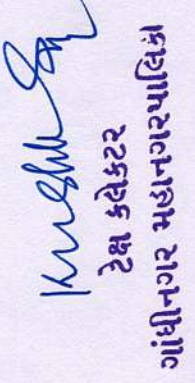 ટેક્ષ કલેક્ટર
ગાંધીનગર મહાનગરપાલિકા